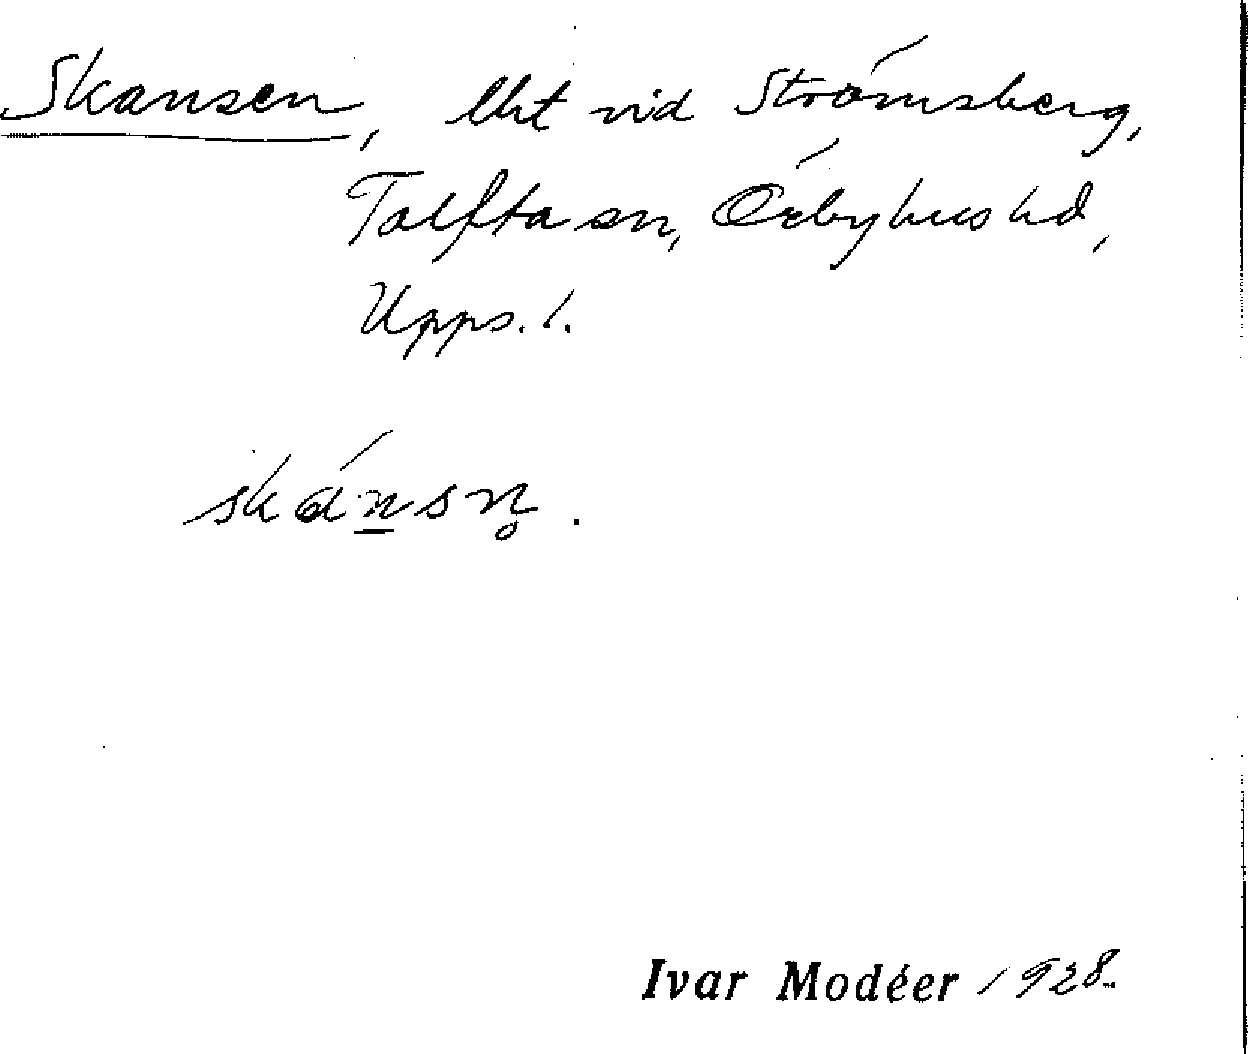 Skansen, lht vid Strömsberg,
Tolfta sn, Örbyhus hd,
Upps. l.
skánsn̥.
Ivar Modéer 1928.